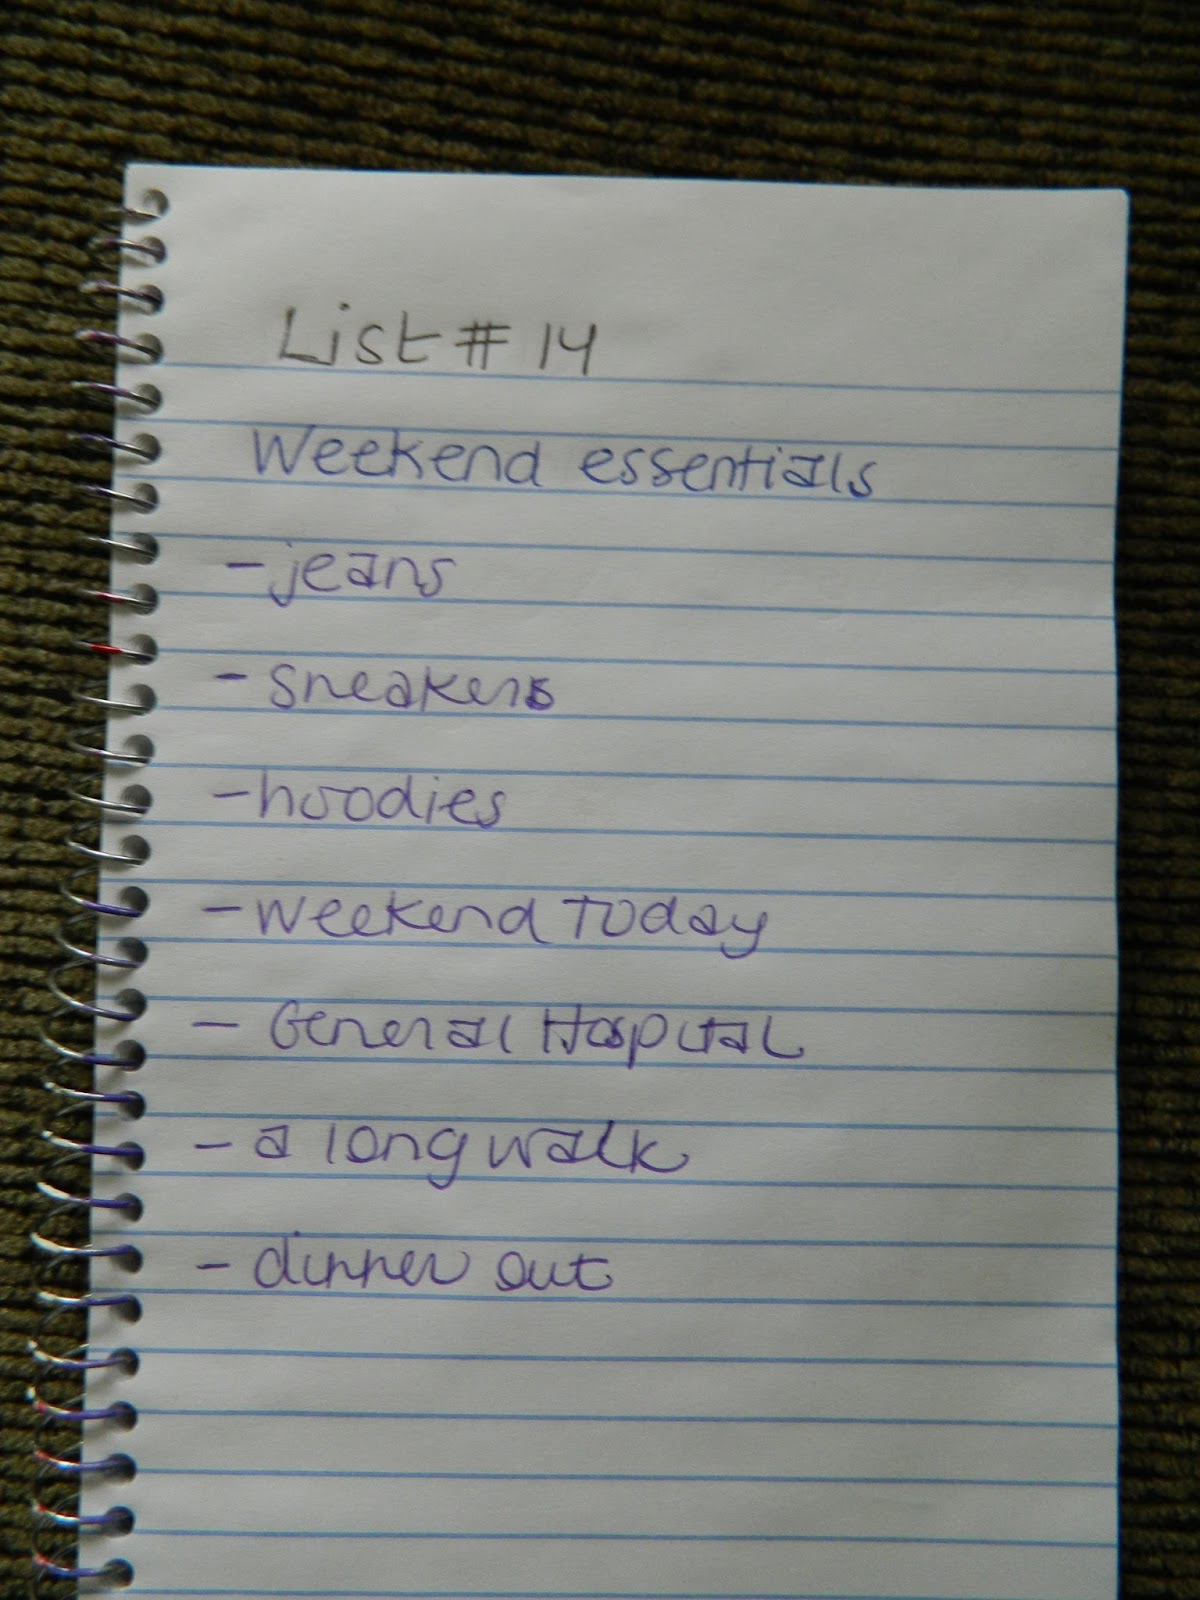 List # 14
Weekend essentials
- jeans
- sneakers
- hoodies
- Weekend Today
- General Hospital
- a long walk
- dinner out